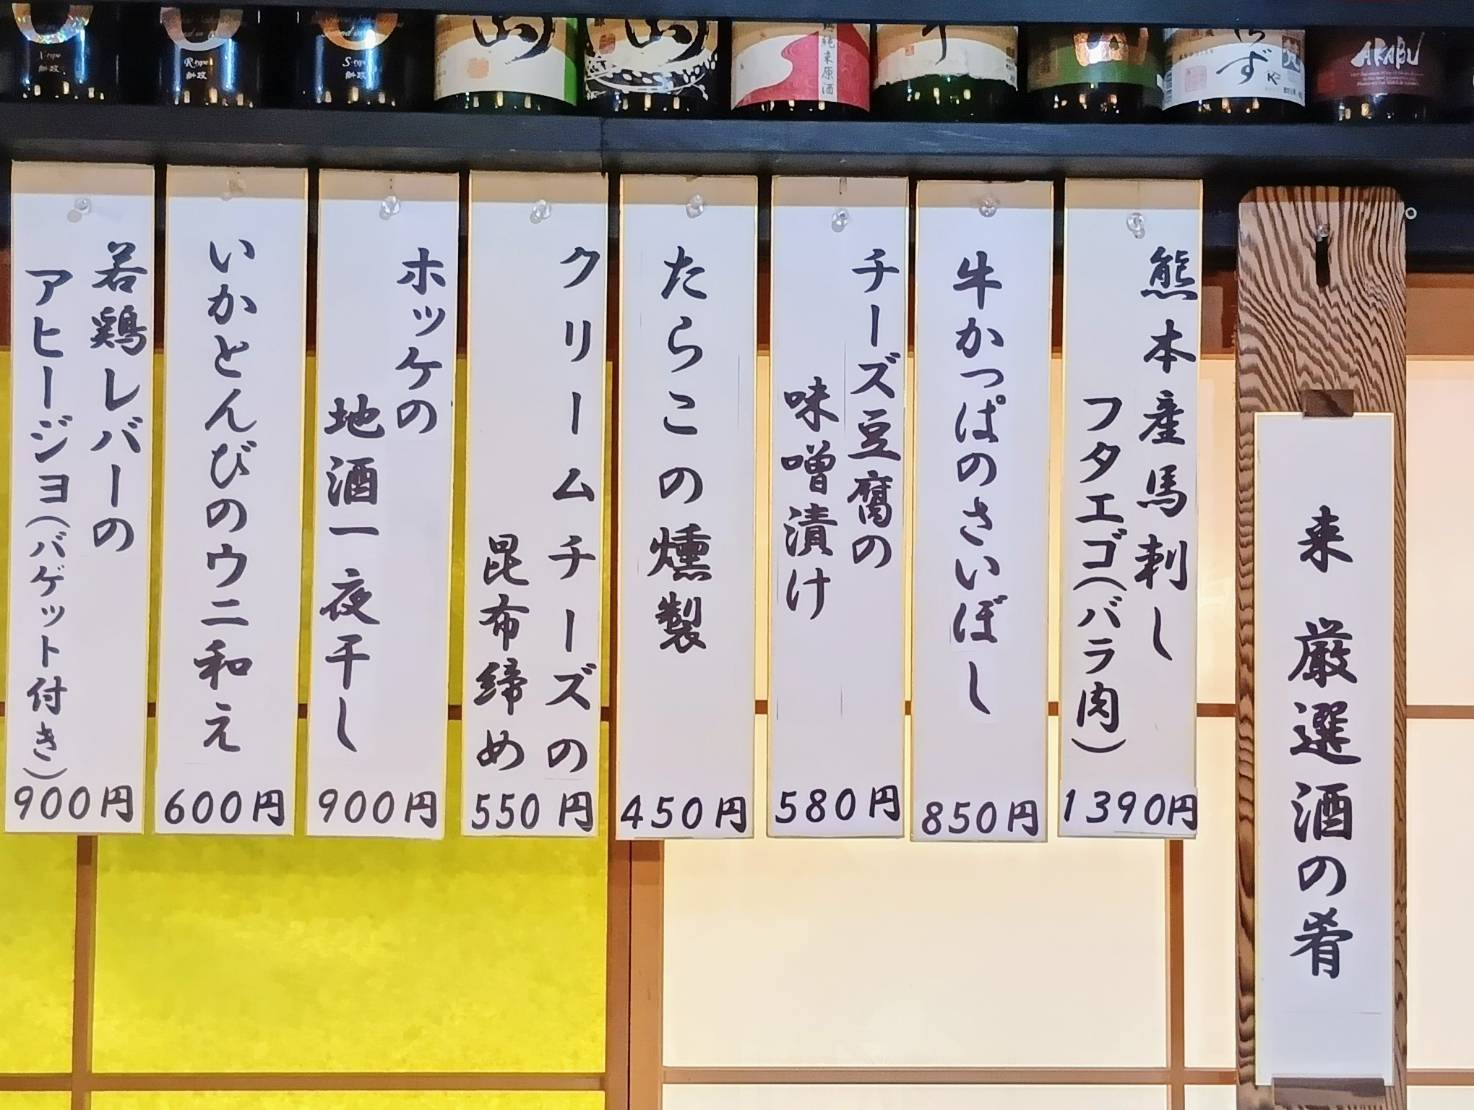 来 厳選酒の肴
熊本産馬刺し
フタエゴ(バラ肉)
1390円
牛かっぱのさいぼし
850円
チーズ豆腐の
味噌漬け
580円
たらこの燻製
450円
クリームチーズの
昆布締め
550円
ホッケの
地酒一夜干し
900円
いかとんびのウニ和え
600円
若鶏レバーの
アヒージョ(バゲット付き)
900円
R type
新政
S type
新政
純米原酒
AKABU